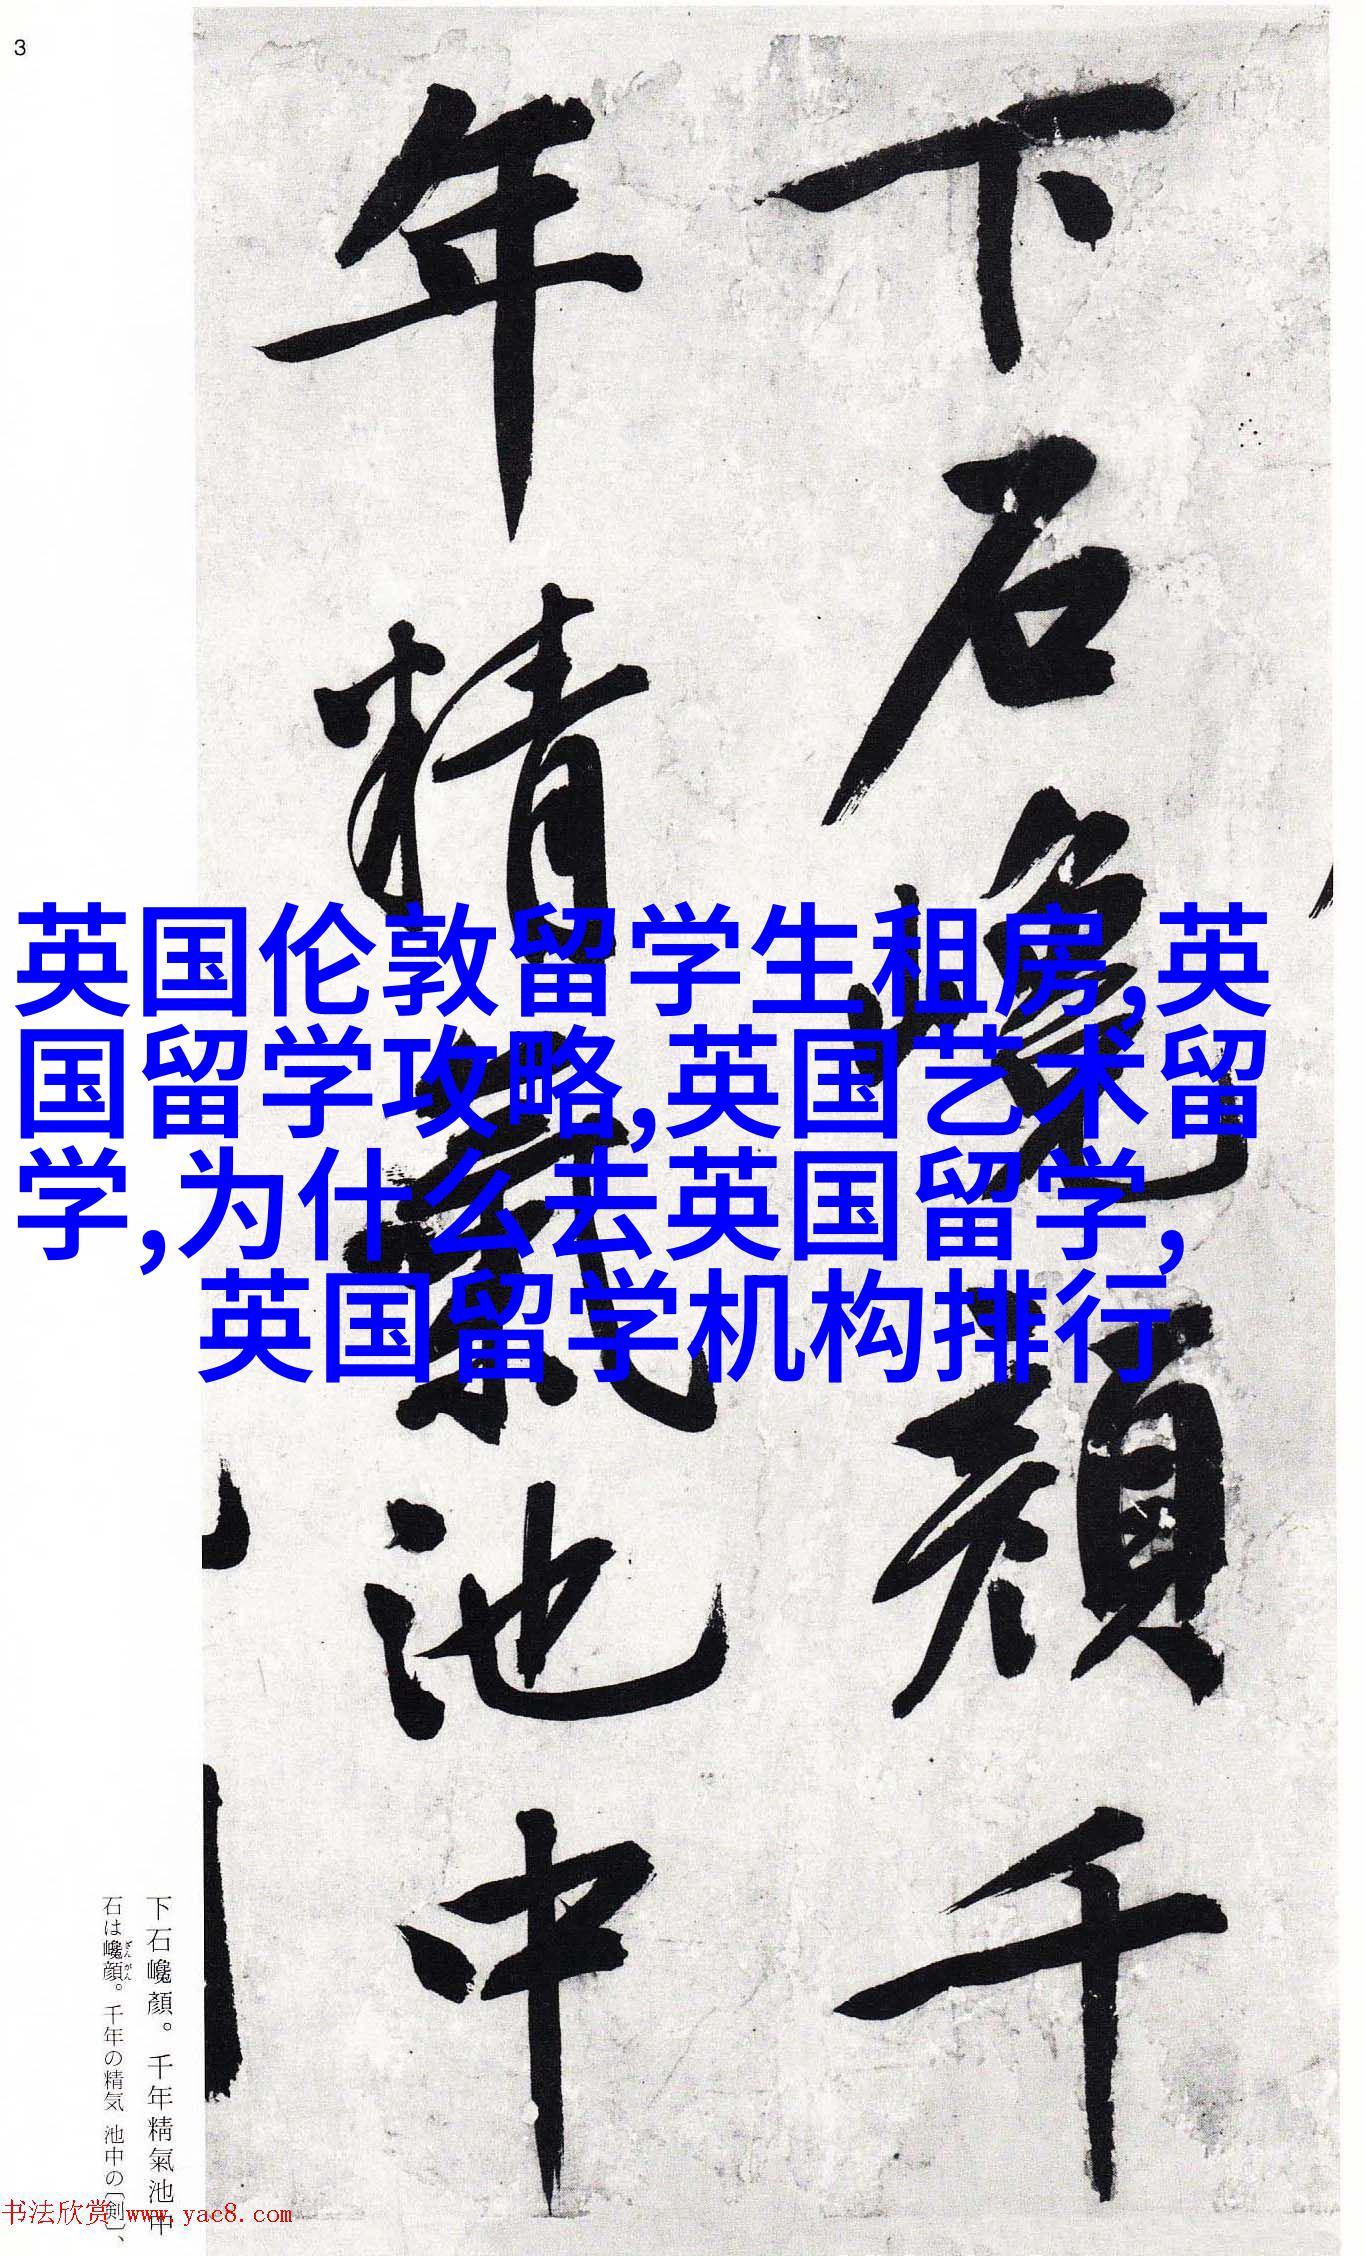 3
下石巉顔千
年精氣池中
英国伦敦留学生租房,英
国留学攻略,英国艺术留
学,为什么去英国留学,
英国留学机构排行
下石巉顔。千年精氣池中
石は巉顔。千年の精気 池中の〔剣〕、
ざんがん
书法欣赏 www.yac8.com